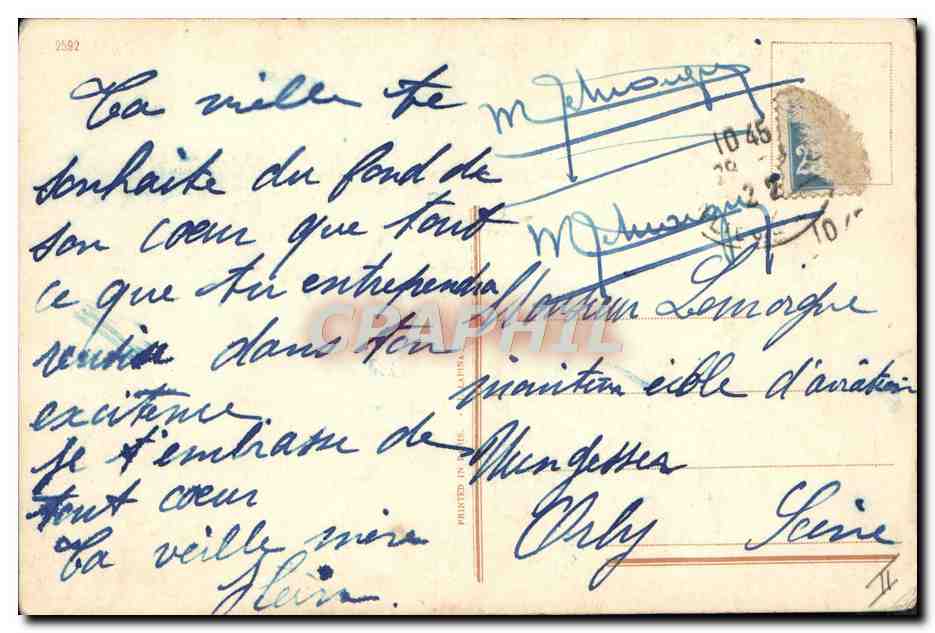 2592
Ta vielle te
souhaite du fond de
son coeur que tout
ce que tu entreprendra
dans ton
excitence
je t'embrasse de
tout coeur
Ta veille mère
M Lemorgue
M Lemorgue
10 45
25
Monsieur Lemorgue
moniteur école d'aviation
Nungesser
Orly Seine
PRINTED IN
CPAPHIL
II